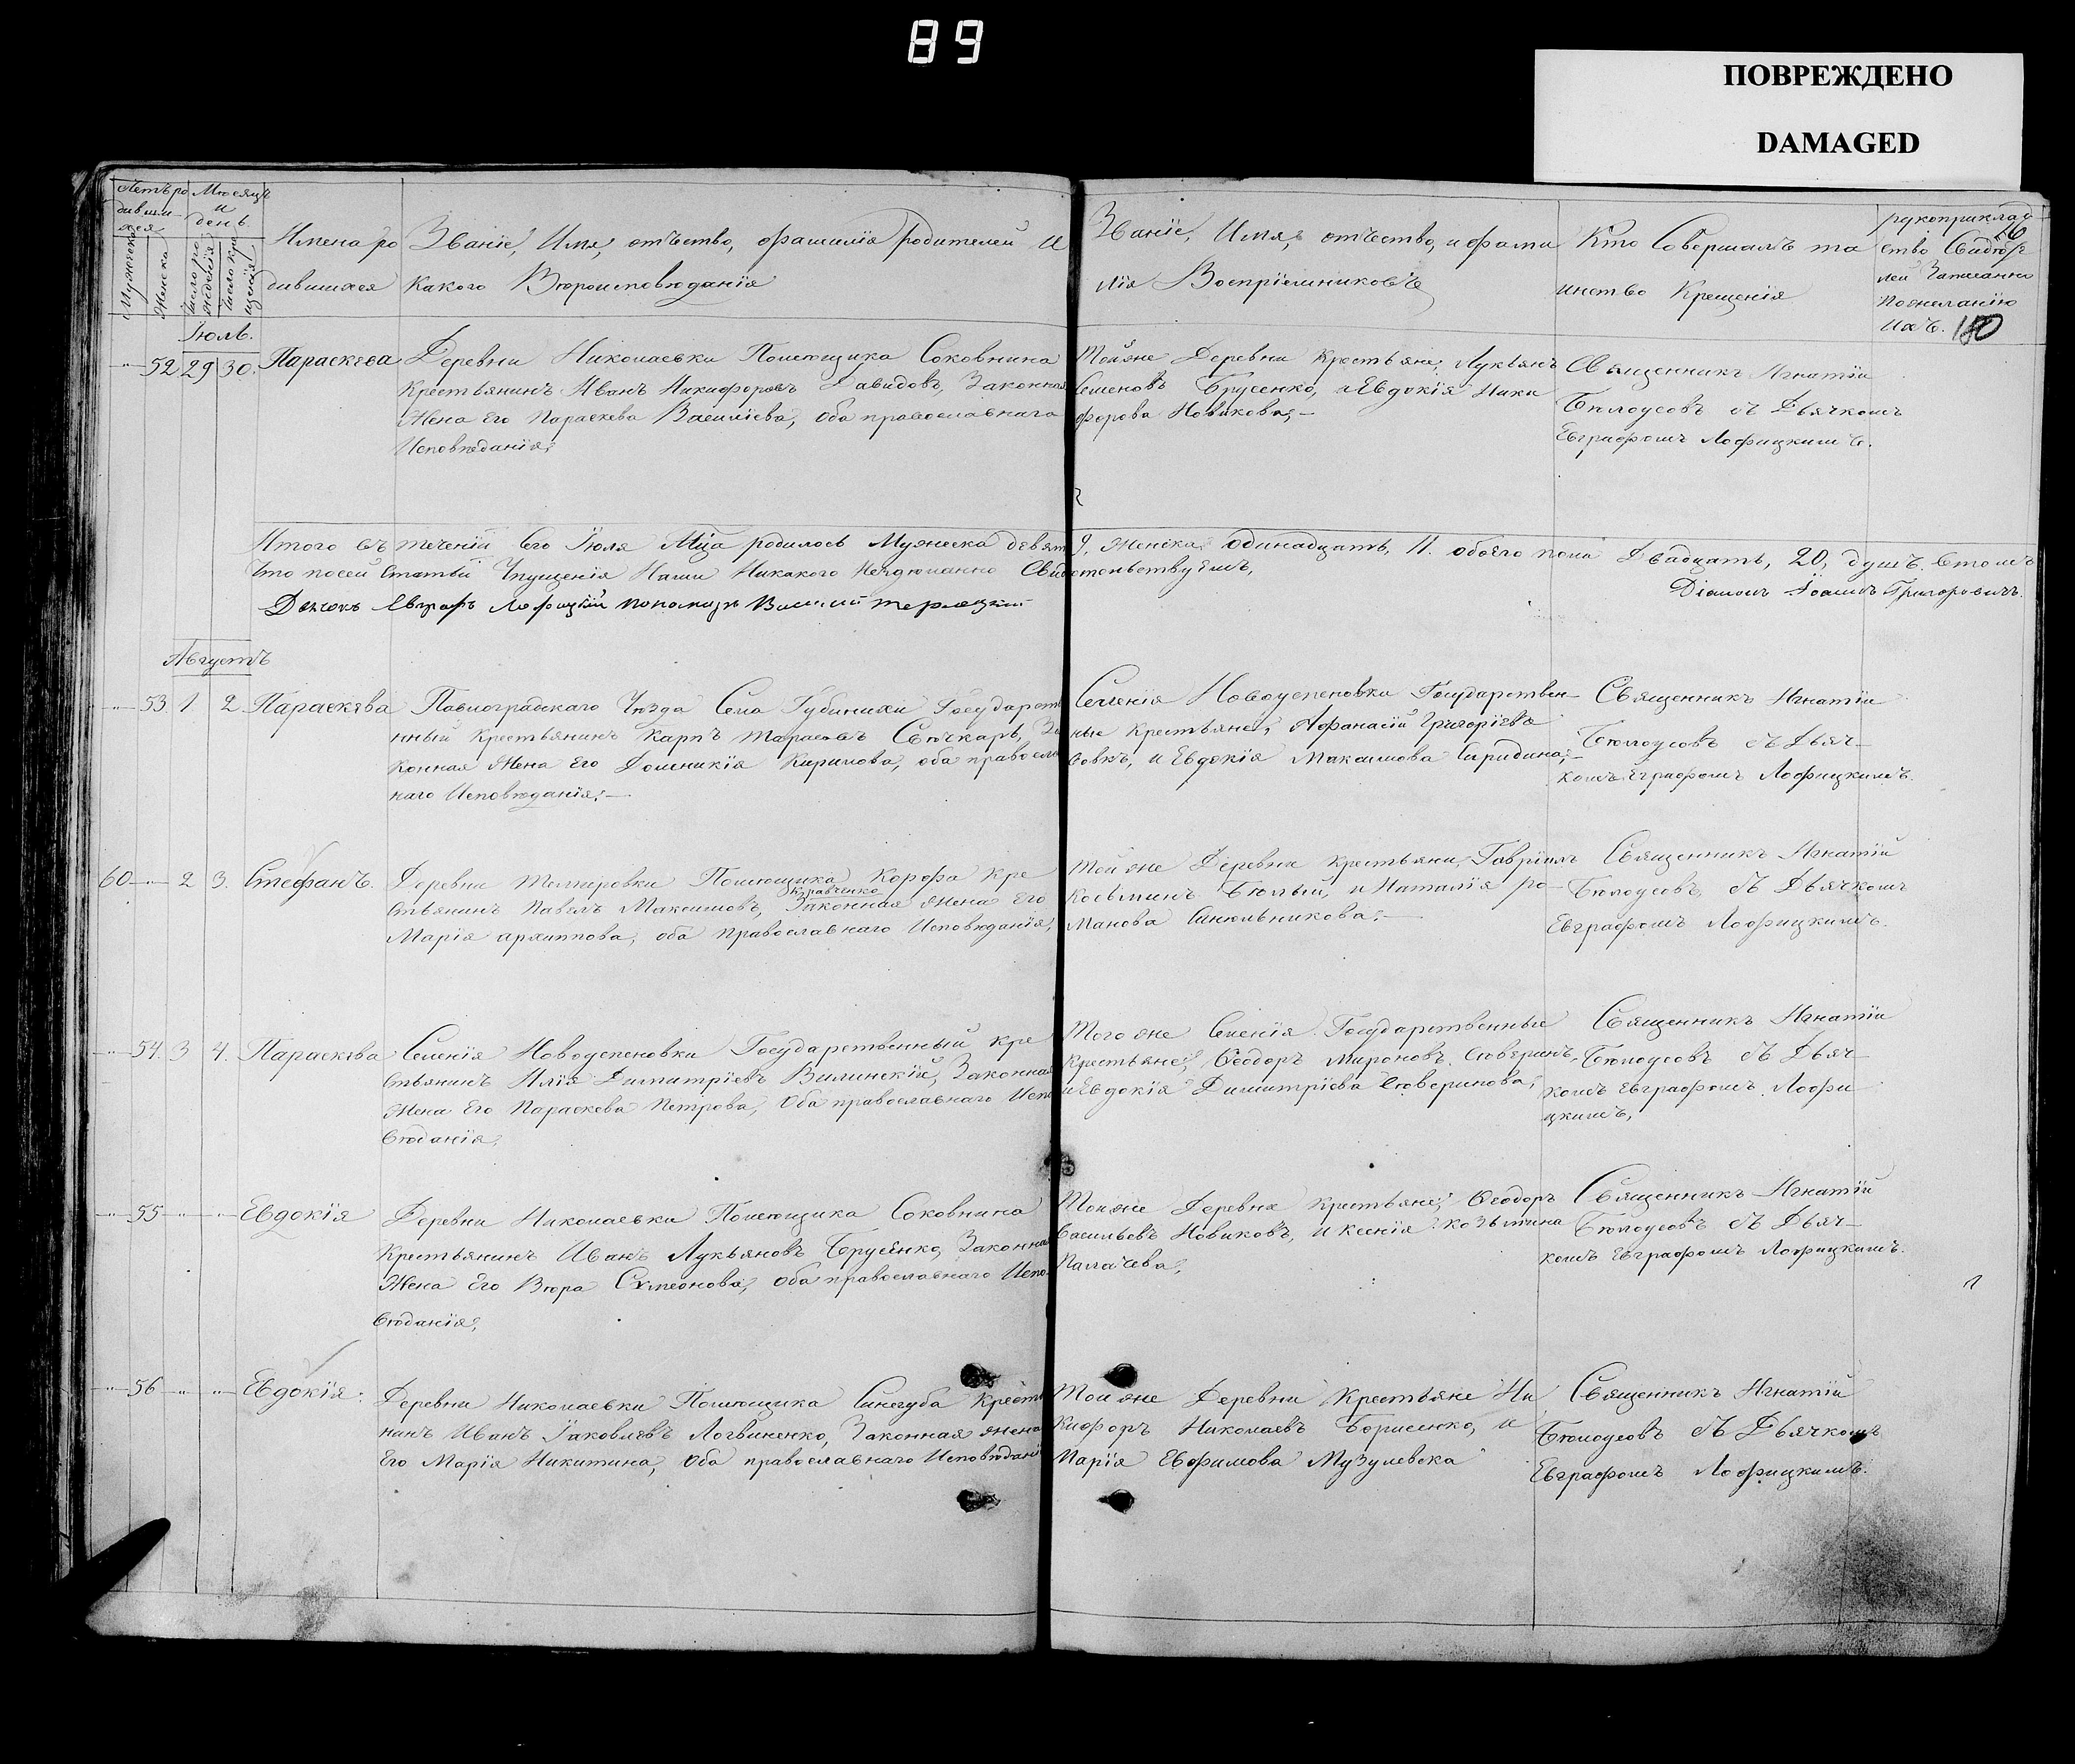 89
ПОВРЕЖДЕНО
DAMAGED
26
180
Мужеска
Женска
Мѣсяцъ
и
день
Число рожденія
Число крещенія
Имена ро
дившихся
Званіе, Имя, отчество, фамилія родителей и
Какого Вѣроисповѣданія
Званіе, Имя, отчество, и фами
лія Воспріемниковъ
Кто Совершалъ та
инство Крещенія
рукоприклад
ство Свидѣте
лей Записанно
По желанію
Ихъ.
Іюль.
52 29 30. Параскева
Деревни Николаевки Помѣщика Соковнина
Крестьянинъ Иванъ Никифоровъ Давидовъ, Законная
Жена Его Параскева Василіева, Оба православнаго
Исповѣданія;
Той же Деревни Крестьяне; Лукьянъ
Семеновъ Брусенко, и Евдокія Ники
форова Новикова;
Священникъ Игнатій
Бѣлоусовъ съ Дьячкомъ
Евграфомъ Лофицкимъ.
Итого въ теченіи Сего Іюля Мца родилось Мужеска девят 9, Женска, Одинадцать, 11. обоего пола Двадцать, 20, душъ. Втомъ
Что по сей Статьи Упущенія Наши Никакого Свидѣтельствуемъ,
Діаконъ Іоаннъ Григоровичъ.
Дьячокъ Евграфъ Лофицкій пономарь Василій
Августъ
53 1 2 Параскева
Павлоградскаго Уѣзда Села Губинихи Государст
нный Крестьянинъ Карпъ Тарасовъ Свѣчкарь, За
конная Жена Его Домникія Кирилова, оба правосла
наго Исповѣданія;
Селенія Новоуспеновки Государствен
ные Крестьяне; Афанасій Григоріевъ
Вовкъ, и Евдокія Максимова Спиридина;
Священникъ Игнатій
Бѣлоусовъ съ Дьяч
комъ Евграфомъ Лофицкимъ.
60 2 3. Стефанъ.
Деревни Помѣщика Корфа Кре
Кравченко
стьянинъ Павелъ Максимовъ, Законная Жена Его
Марія Архиппова, оба православнаго Исповѣданія,
Той же Деревни крестьяни, Гавріилъ
Косьминъ Бѣлый, и Наталія Ро
манова Синѣльникова;
Священникъ Игнатій
Бѣлоусовъ, съ Дьячкомъ
Евграфомъ Лофицкимъ.
54. 3 4. Параскева
Селенія Новоуспеновки Государственный кре
стьянинъ Илія Димитріевъ Вилинскій, Законная
Жена Его Параскева Петрова, Оба православнаго Испо
вѣданія,
Того же Селенія Государственные
крестьяне; Ѳеодоръ Мироновъ Севѣринъ,
и Евдокія Димитріева Севѣринова,
Священникъ Игнатій
Бѣлоусовъ съ Дьяч
комъ Евграфомъ Лофи
цкимъ,
55 Евдокія
Деревни Николаевки Помѣщика Соковнина
Крестьянинъ Иванъ Лукьяновъ Брусенко, Законная
Жена Его Вѣра Симеонова, Оба православнаго Испо
вѣданія,
Той же Деревни крестьяне; Ѳеодоръ
Васильевъ Новиковъ, и Ксенія Козьмина
Палачева,
Священникъ Игнатій
Бѣлоусовъ съ Дьяч
комъ Евграфомъ Лофицкимъ.
56 Евдокія.
Деревни Николаевки Помѣщика Синегуба Крестья
нинъ Иванъ Яковлевъ Логвиненко, Законная Жена
Его Марія Никитина, Оба православнаго Исповѣдані
Той же Деревни Крестьяне Ни
кифоръ Николаевъ Борисенко, и
Марія Евфимова Музулевска
Священникъ Игнатій
Бѣлоусовъ съ Дьячкомъ
Евграфомъ Лофицкимъ.